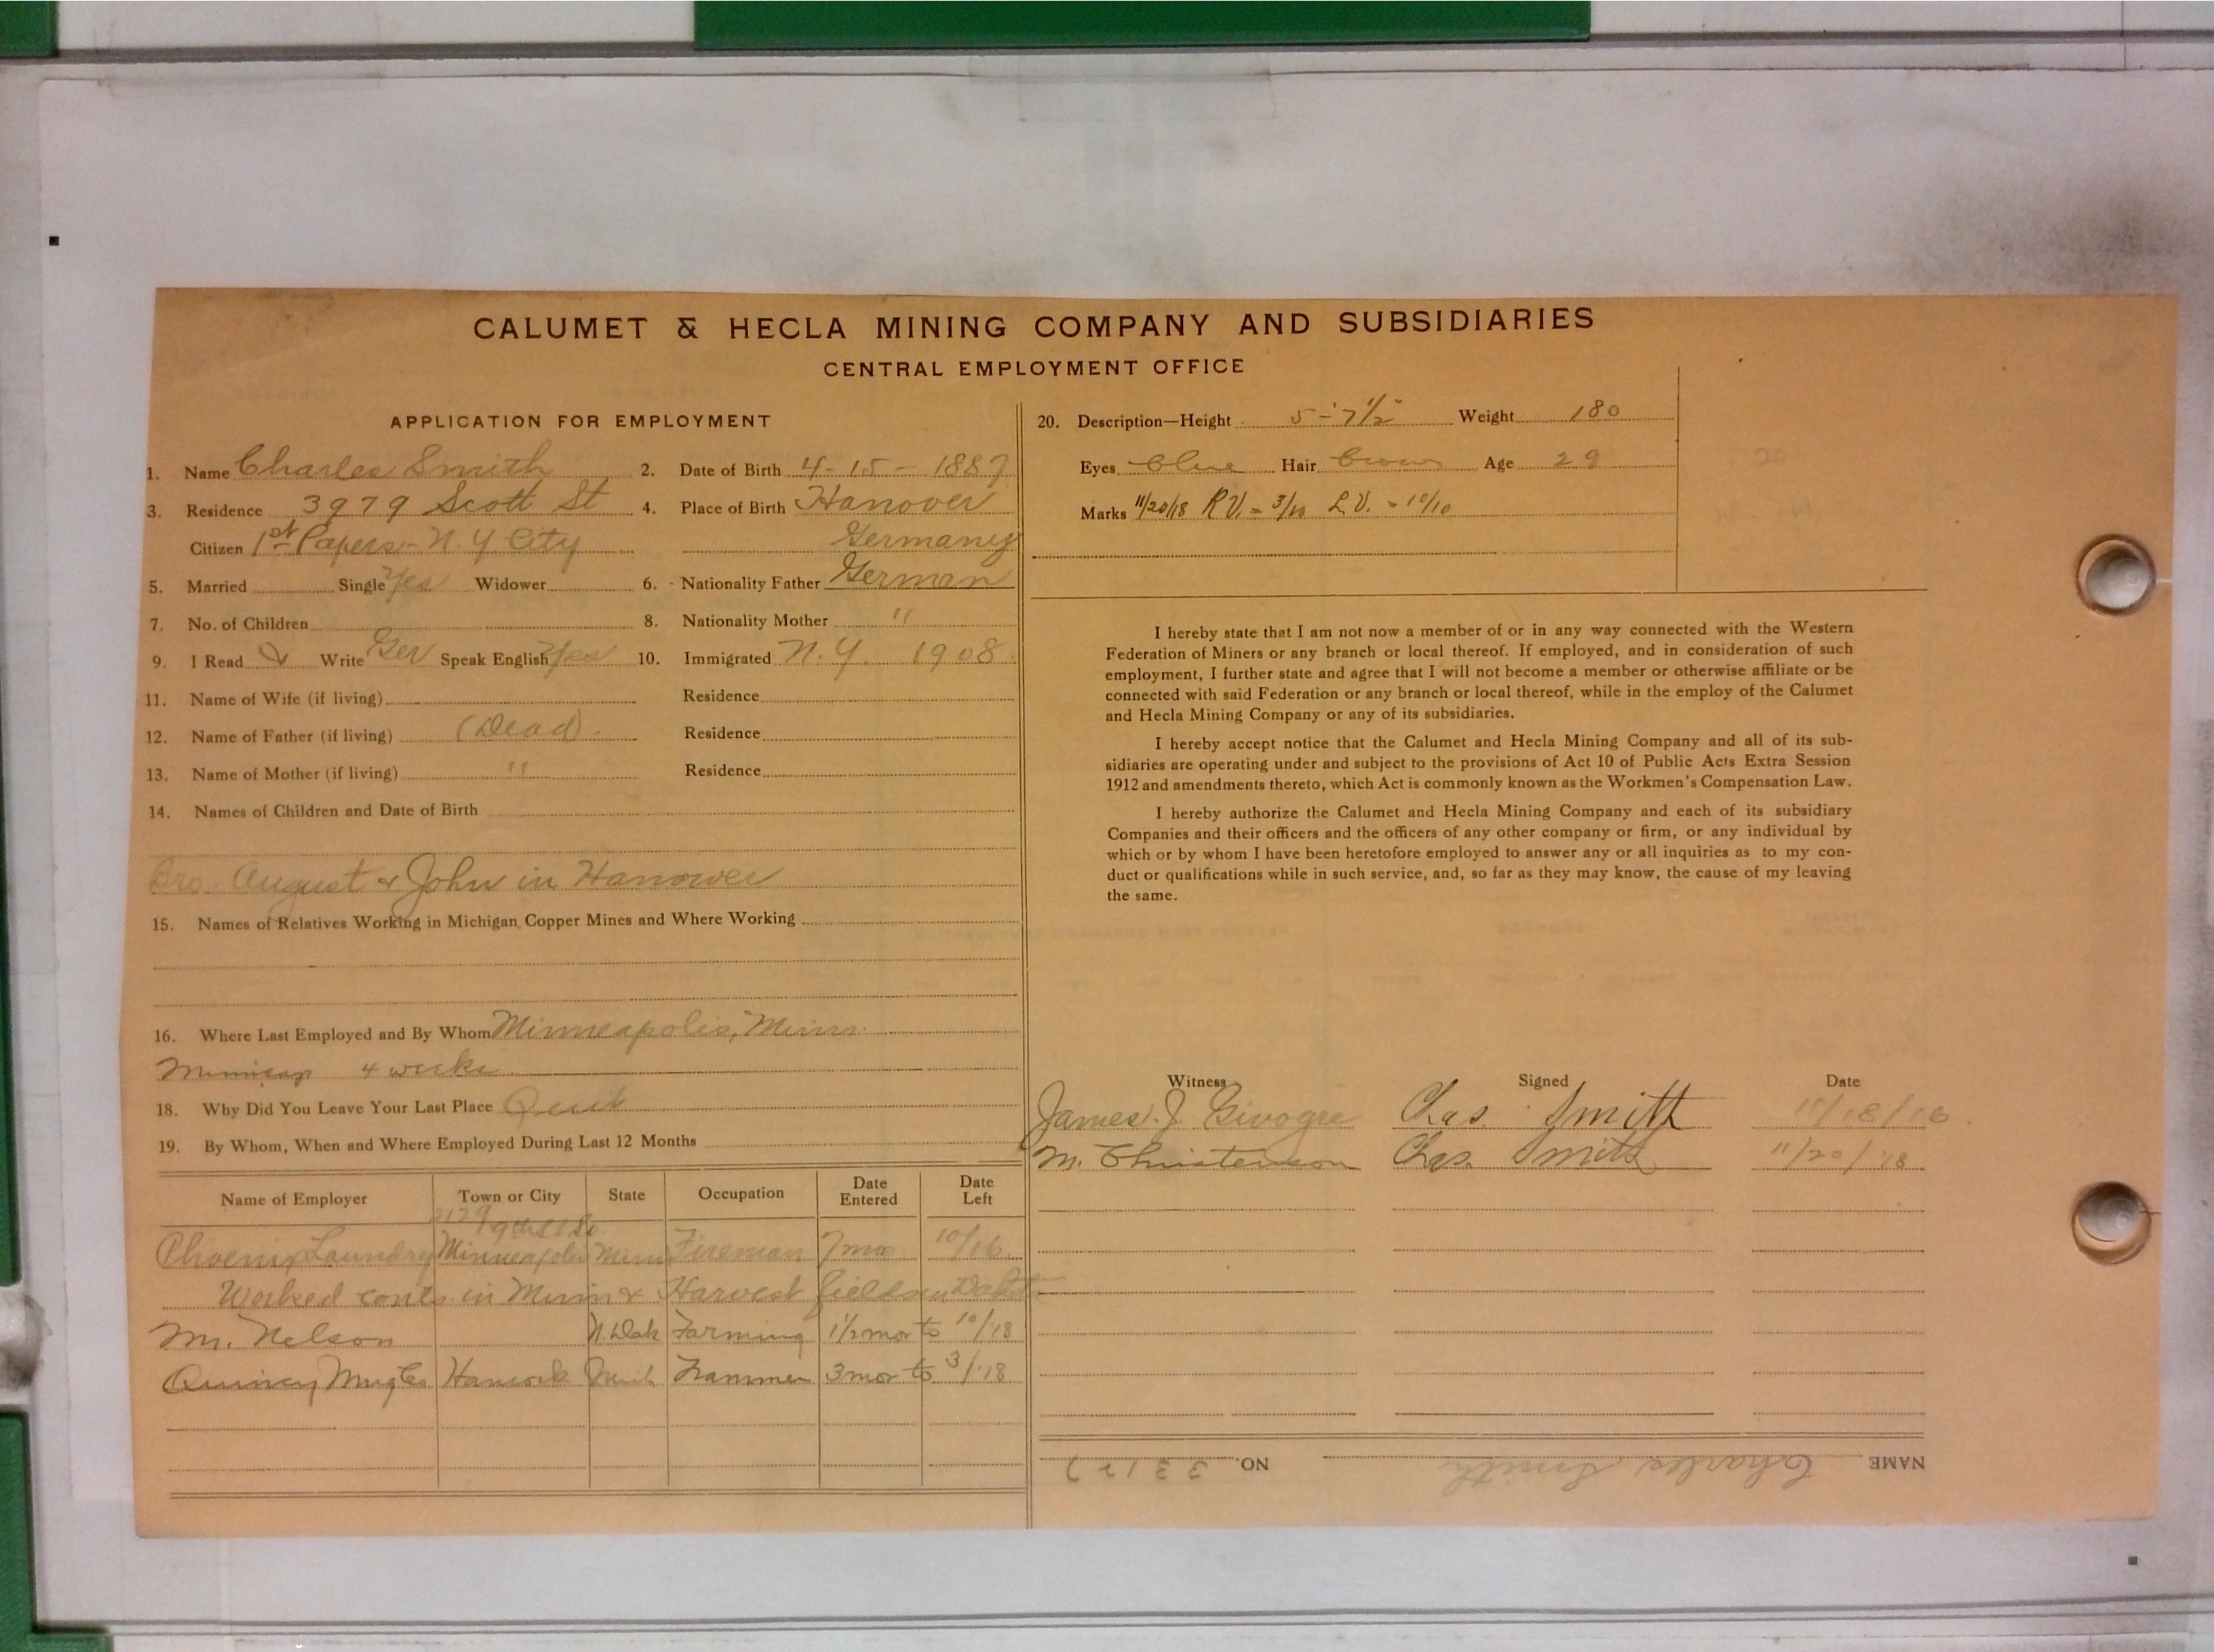 CALUMET & HECLA MINING COMPANY AND SUBSIDIARIES
CENTRAL EMPLOYMENT OFFICE
APPLICATION FOR EMPLOYMENT
1. Name Charles Smith 2. Date of Birth 4-15-1887
3. Residence 3979 Scott St 4. Place of Birth Hanover
Citizen 1st Papers - N.Y City Germany
5. Married Single Yes Widower 6. Nationality Father German
7. No. of Children 8. Nationality Mother "
9. I Read & Write Ger Speak English Yes 10. Immigrated N.Y. 1908
11. Name of Wife (if living) Residence
12. Name of Father (if living) (Dead). Residence
13. Name of Mother (if living) " Residence
14. Names of Children and Date of Birth
Bro. August & John in Hanover
15. Names of Relatives Working in Michigan Copper Mines and Where Working
16. Where Last Employed and By Whom Minneapolis, Minn.
4 weeks
18. Why Did You Leave Your Last Place Quit
19. By Whom, When and Where Employed During Last 12 Months
Name of Employer Town or City State Occupation Date Entered Date Left
2129 9th St So.
Phoenix Laundry Minneapolis Minn Fireman 7 mos 10/16
Worked in Minn & Harvest fields in Dakota
Mr. Nelson N. Dak Farming 1½ mos to 10/18
Quincy Mng Co Hancock Mich Trammer 3 mos to 3/18
20. Description—Height 5-7½" Weight 180
Eyes Blue Hair Brown Age 29
Marks 11/20/18 R.V. = 3/10 L.V. = 10/10
I hereby state that I am not now a member of or in any way connected with the Western
Federation of Miners or any branch or local thereof. If employed, and in consideration of such
employment, I further state and agree that I will not become a member or otherwise affiliate or be
connected with said Federation or any branch or local thereof, while in the employ of the Calumet
and Hecla Mining Company or any of its subsidiaries.
I hereby accept notice that the Calumet and Hecla Mining Company and all of its sub-
sidiaries are operating under and subject to the provisions of Act 10 of Public Acts Extra Session
1912 and amendments thereto, which Act is commonly known as the Workmen's Compensation Law.
I hereby authorize the Calumet and Hecla Mining Company and each of its subsidiary
Companies and their officers and the officers of any other company or firm, or any individual by
which or by whom I have been heretofore employed to answer any or all inquiries as to my con-
duct or qualifications while in such service, and, so far as they may know, the cause of my leaving
the same.
Witness Signed Date
James J. Chas. Smith 11/18/16
M. Christenson Chas. Smith 11/20/18
NAME Charles Smith NO. 33127